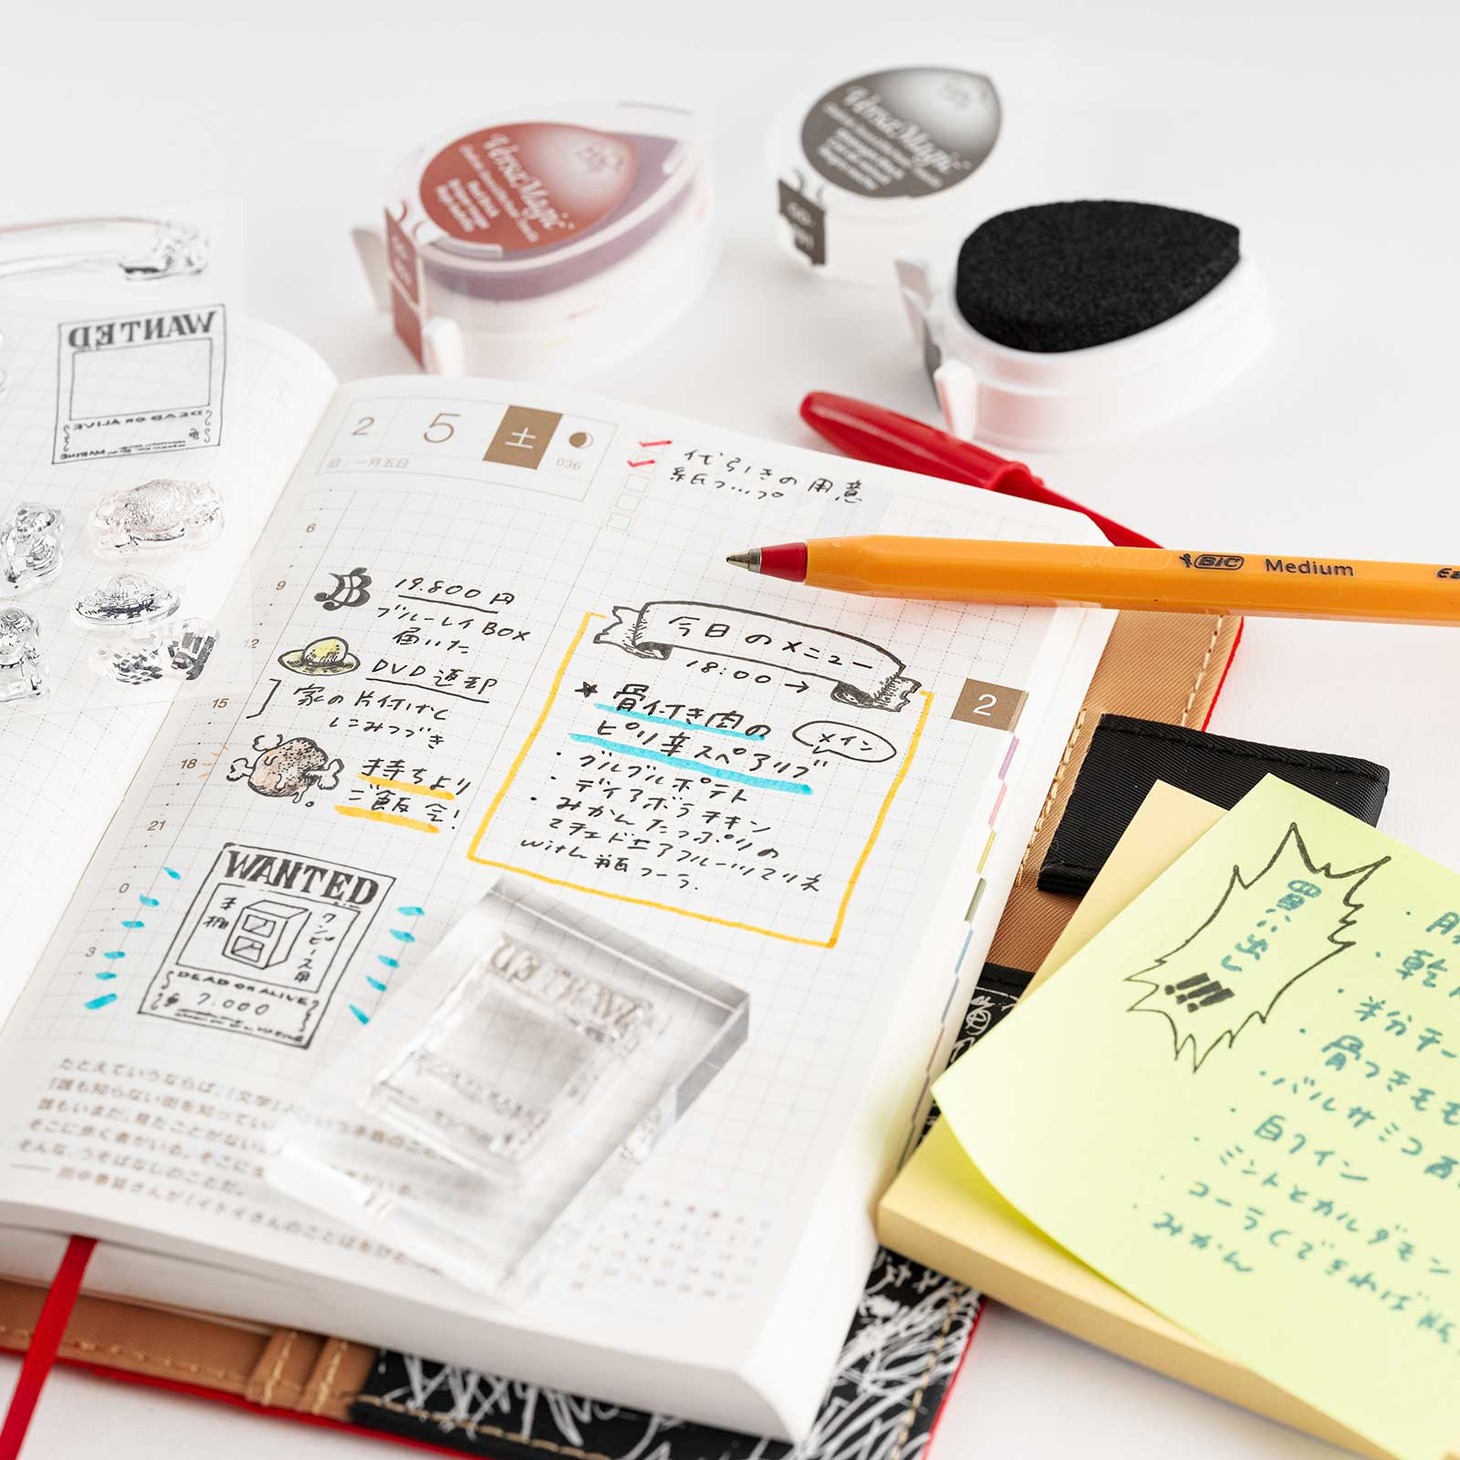 VersaMagic
VersaMagic
WANTED
DEAD OR ALIVE
MARINE
2 5 土
旧 一月五日
036
代引きの用意
紙コップ
BIC Medium
6
9
12
15
18
21
0
3
19.800円
ブルーレイBOX
届いた
DVD返却
家の片付けと
しこみつづき
持ちより
ご飯会!
今日のメニュー
18:00→
★骨付き肉の
ピリ辛スペアリブ
メイン
・グルグルポテト
・ディアボラチキン
・みかんたっぷりの
マチェドニアフルーツマリネ
with 瓶コーラ.
2
WANTED
本棚
ワンピース用
DEAD OR ALIVE
7.000
MARINE
たとえていうならば、「文学」
「誰も知らない街を知ってい
誰もいまだ、見たことがない
そこに歩く者がいる。そこに生
そんな、うそばなしのことだ。
買い出し!!!
・乾
・粉チー
・骨つきモモ
・バルサミコ
・白ワイン
・ミントとカルダモン
・コーラ(できれば瓶
・みかん